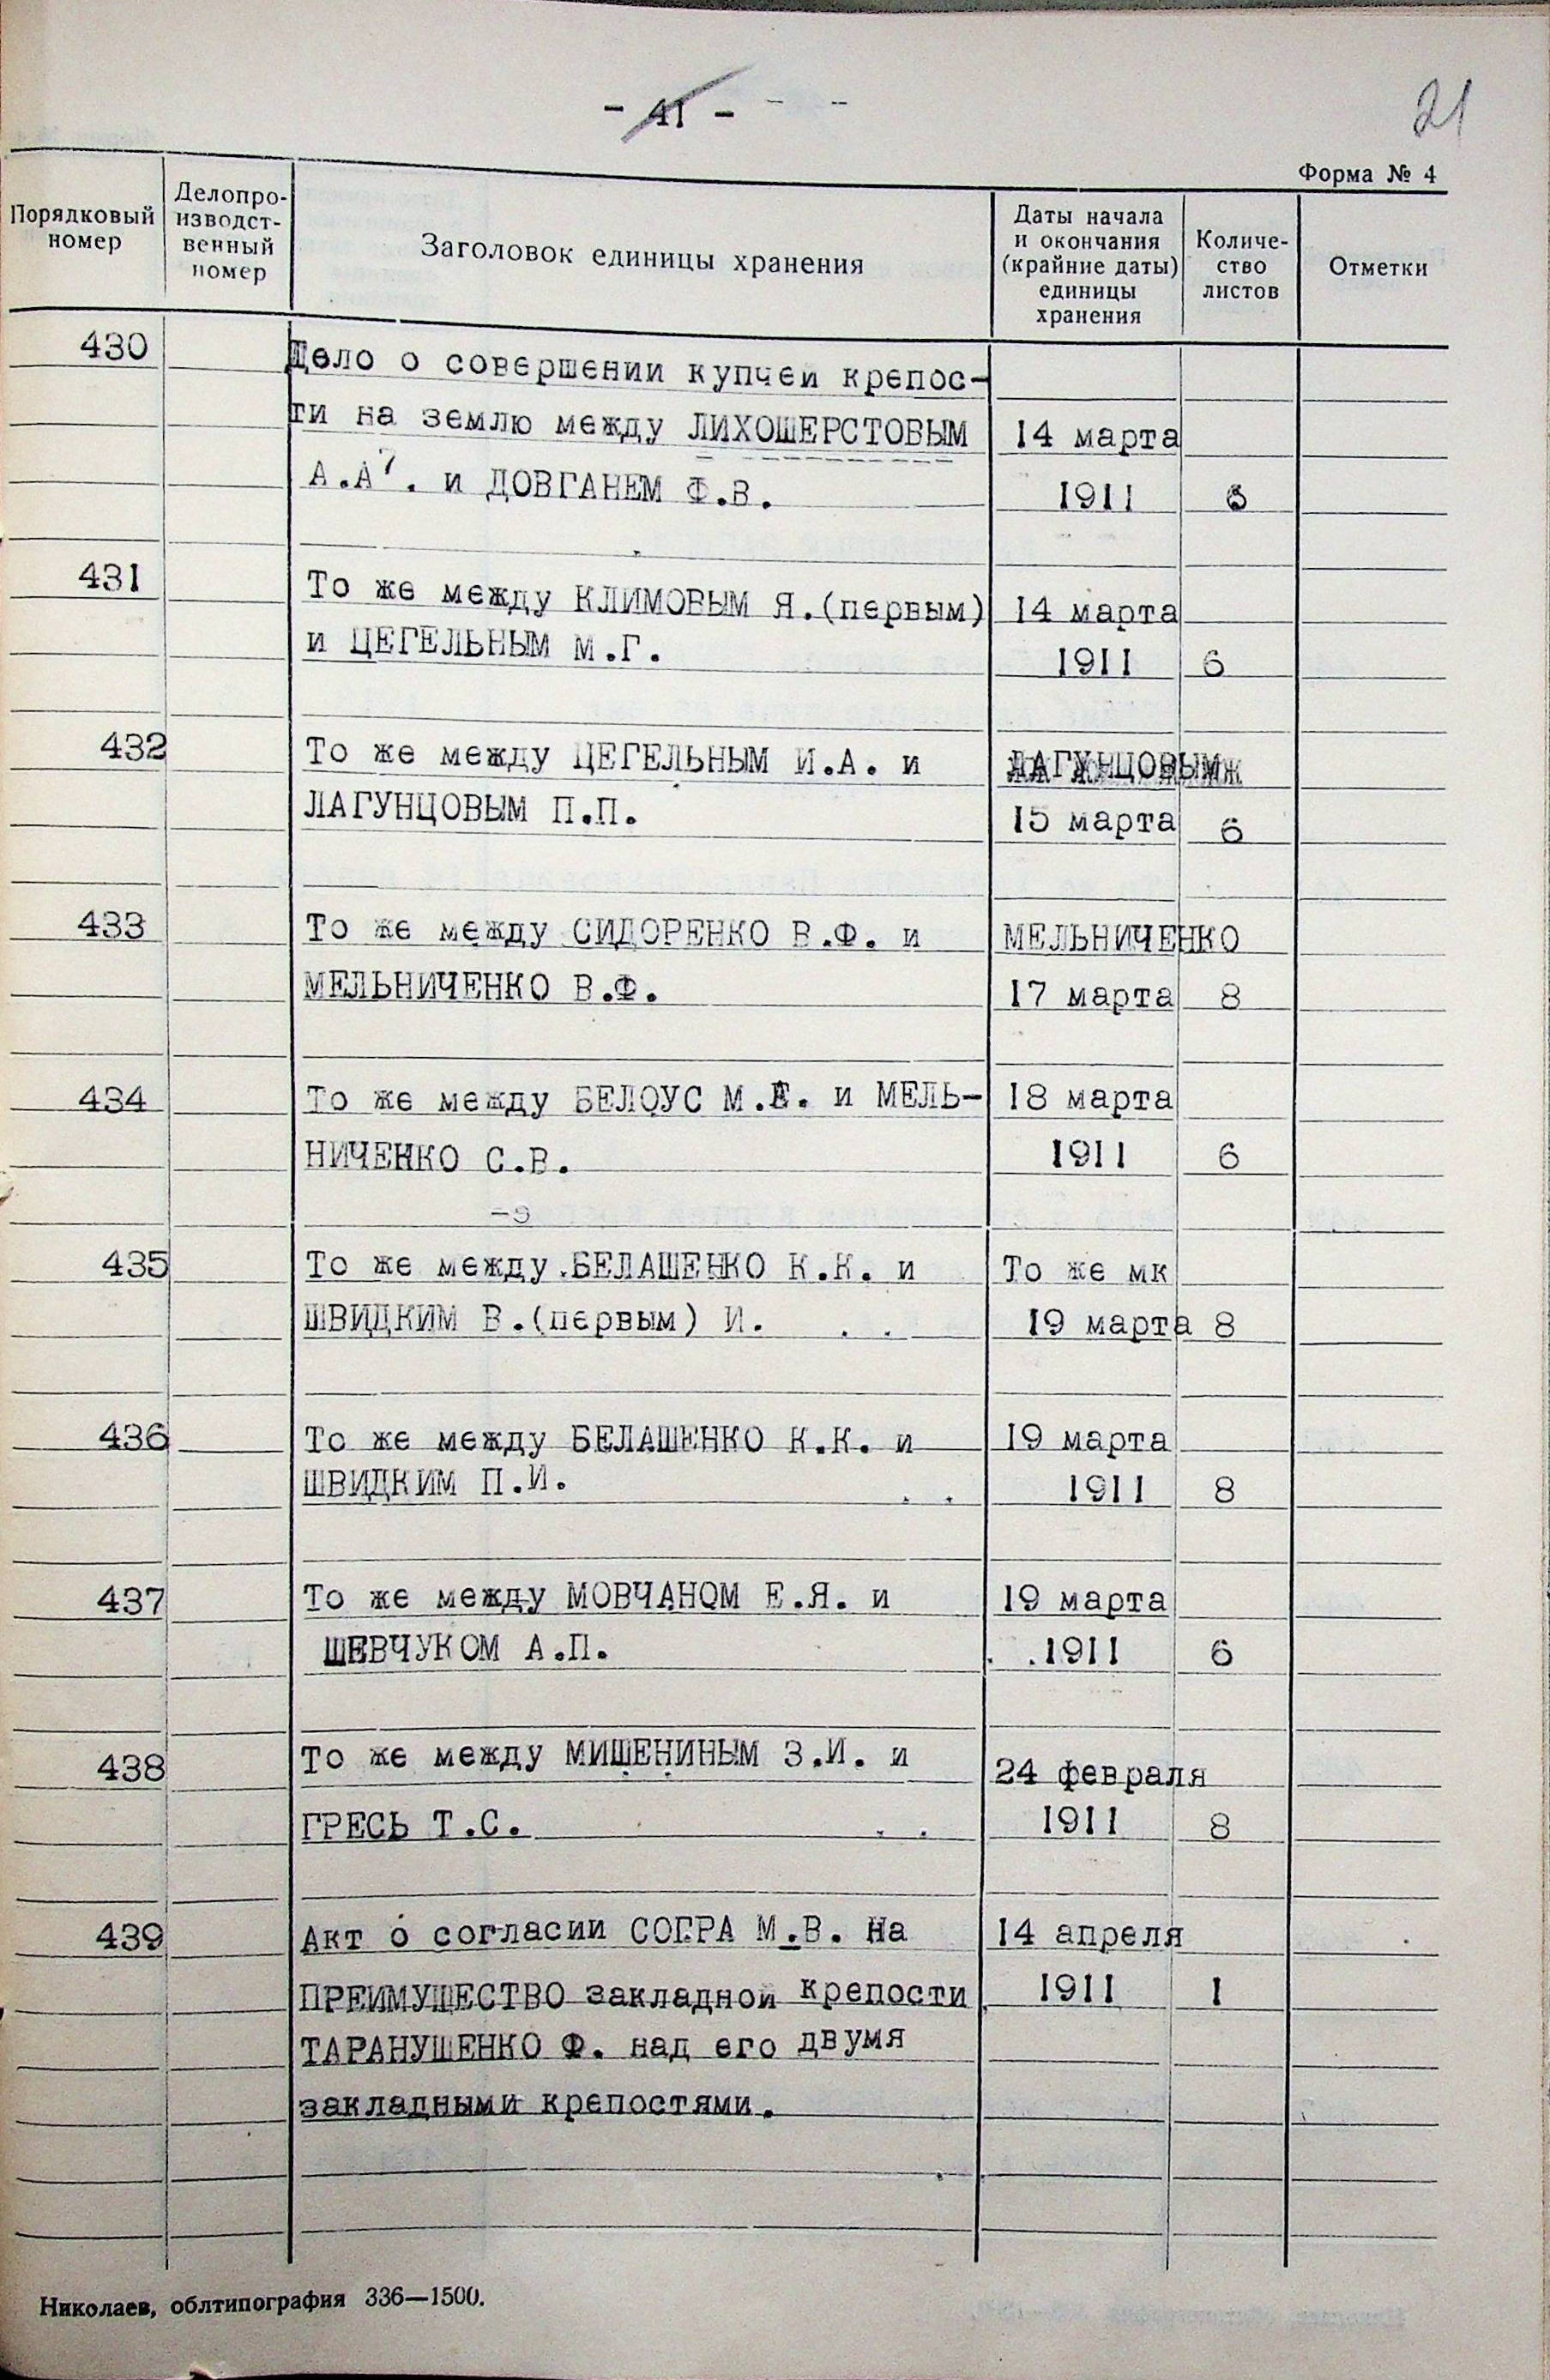 - 41 -
21
Форма № 4
Порядковый номер
Делопро-
изводст-
венный
номер
Заголовок единицы хранения
Даты начала
и окончания
(крайние даты)
единицы
хранения
Количе-
ство
листов
Отметки
430
Дело о совершении купчей крепос-
ти на землю между ЛИХОШЕРСТОВЫМ 14 марта
А.А. и ДОВГАНЕМ Ф.В. 1911 6
431 То же между КЛИМОВЫМ Я.(первым) 14 марта
и ЦЕГЕЛЬНЫМ М.Г. 1911 6
432 То же между ЦЕГЕЛЬНЫМ И.А. и ЛАГУНЦОВЫМ
ЛАГУНЦОВЫМ П.П. 15 марта 6
433 То же между СИДОРЕНКО В.Ф. и МЕЛЬНИЧЕНКО
МЕЛЬНИЧЕНКО В.Ф. 17 марта 8
434 То же между БЕЛОУС М.Е. и МЕЛЬ- 18 марта
НИЧЕНКО С.В. 1911 6
-э
435 То же между БЕЛАШЕНКО К.К. и То же мк
ШВИДКИМ В.(первым) И. 19 марта 8
436 То же между БЕЛАШЕНКО К.К. и 19 марта
ШВИДКИМ П.И. 1911 8
437 То же между МОВЧАНОМ Е.Я. и 19 марта
ШЕВЧУКОМ А.П. 1911 6
438 То же между МИШЕНИНЫМ З.И. и 24 февраля
ГРЕСЬ Т.С. 1911 8
439 Акт о согласии СОГРА М.В. на 14 апреля
ПРЕИМУЩЕСТВО закладной крепости 1911 1
ТАРАНУШЕНКО Ф. над его двумя
закладными крепостями.
Николаев, облтипография 336—1500.